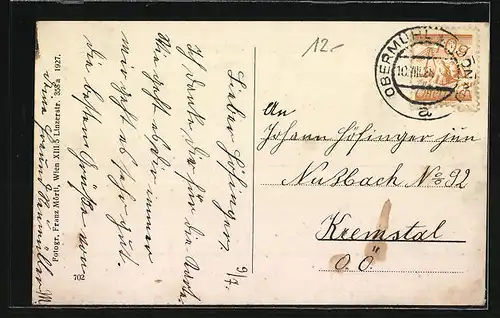 12.-
OBERMÜHL
10.VIII.28
a
60
9/7.
Lieber Höfinger,
Ich danke Dir für die Karte.
Wie geht es Dir immer
mir geht es sehr gut.
die besten Grüße von
Deine
Fotogr. Franz Mörtl, Wien XIII/5 Linzerstr. 358a 1927.
702
An
Johann Höfinger jun
Nußbach No 92
Kremstal
O.Ö.